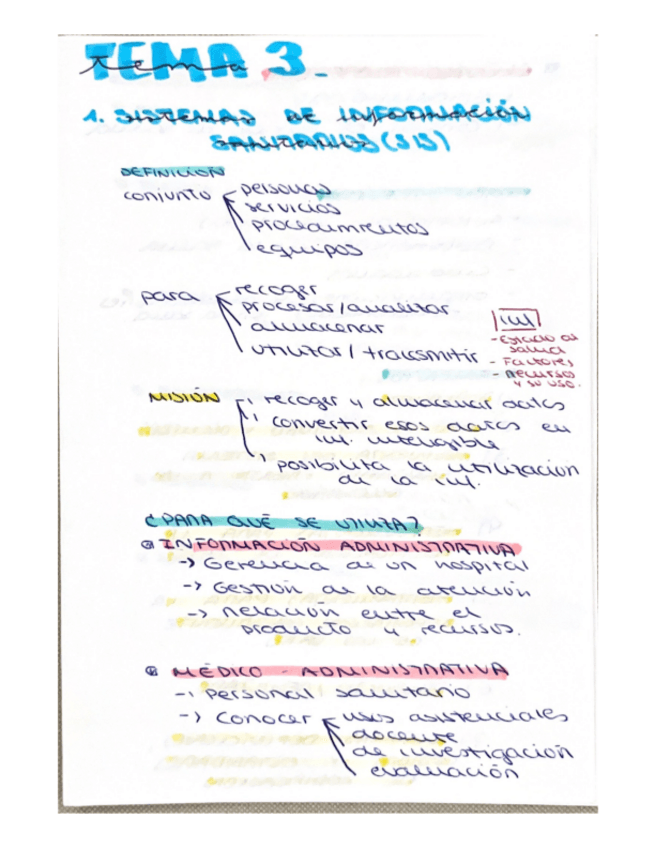 TEMA 3.
tema
1. SISTEMAS DE INFORMACIÓN
SANITARIOS (SIS)
DEFINICIÓN
conjunto personas
servicios
procedimientos
equipos
para recoger
procesar/analizar
almacenar
utilizar / transmitir
inf
- Estado de
salud
- Factores
- Recursos
y su uso.
MISIÓN recoger y almacenar datos
convertir esos datos en
inf. inteligible
posibilita la utilización
de la inf.
¿PARA QUÉ SE UTILIZA?
INFORMACIÓN ADMINISTRATIVA
-> Gerencia de un hospital
-> Gestión de la atención
-> Relación entre el
producto y recursos.
MÉDICO - ADMINISTRATIVA
-> Personal sanitario
-> Conocer usos asistenciales
docente
de investigación
evaluación